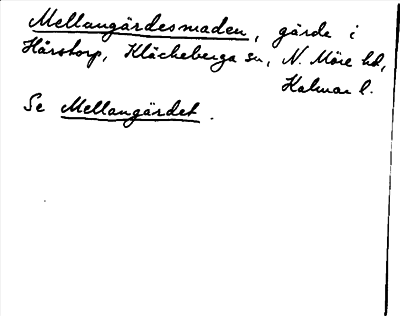 Mellangärdesmaden, gärde i
Hårstorp, Kläckeberga sn, N. Möre hd,
Kalmar l.
Se Mellangärdet.